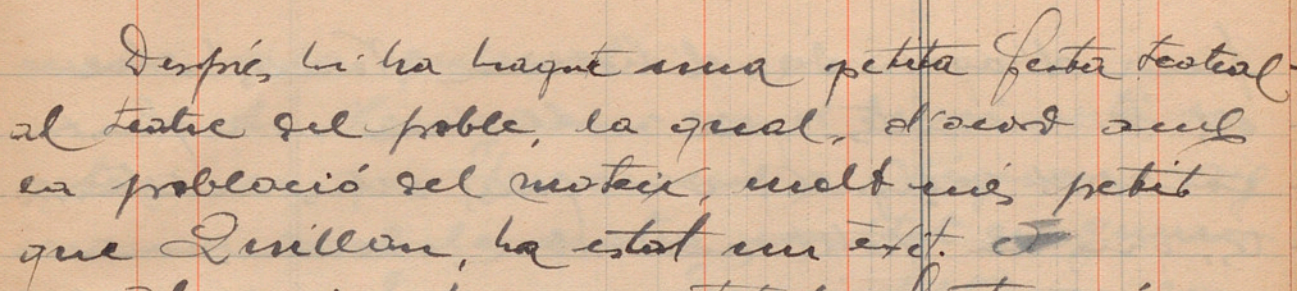 Després, hi ha hagut una petita festa teatral
al teatre del poble, la qual, d'acord amb
la població del mateix, molt més petit
que Quillan, ha estat un èxit.